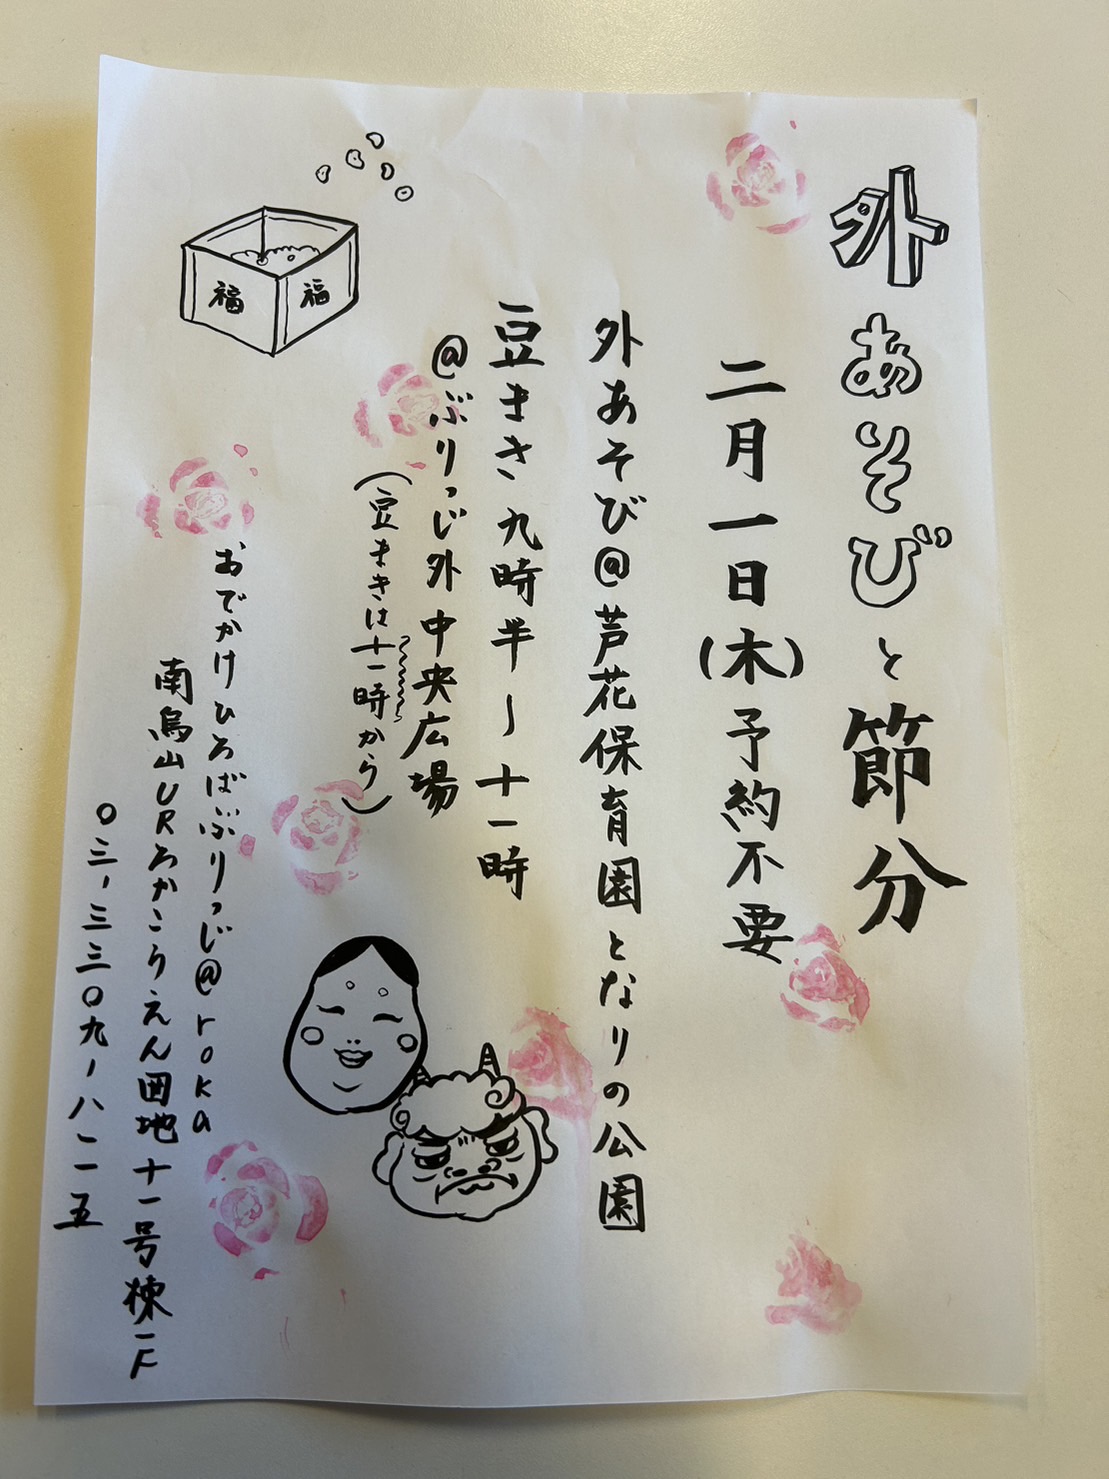 外あそびと節分
二月一日(木)予約不要
外あそび@芦花保育園となりの公園
豆まき九時半〜十一時
@ぶりっじ外中央広場
(豆まきは十一時から)
おでかけひろばぶりっじ@roka
南烏山URろかこうえん団地十一号棟一F
〇三-三三〇九-八一一五
福
福